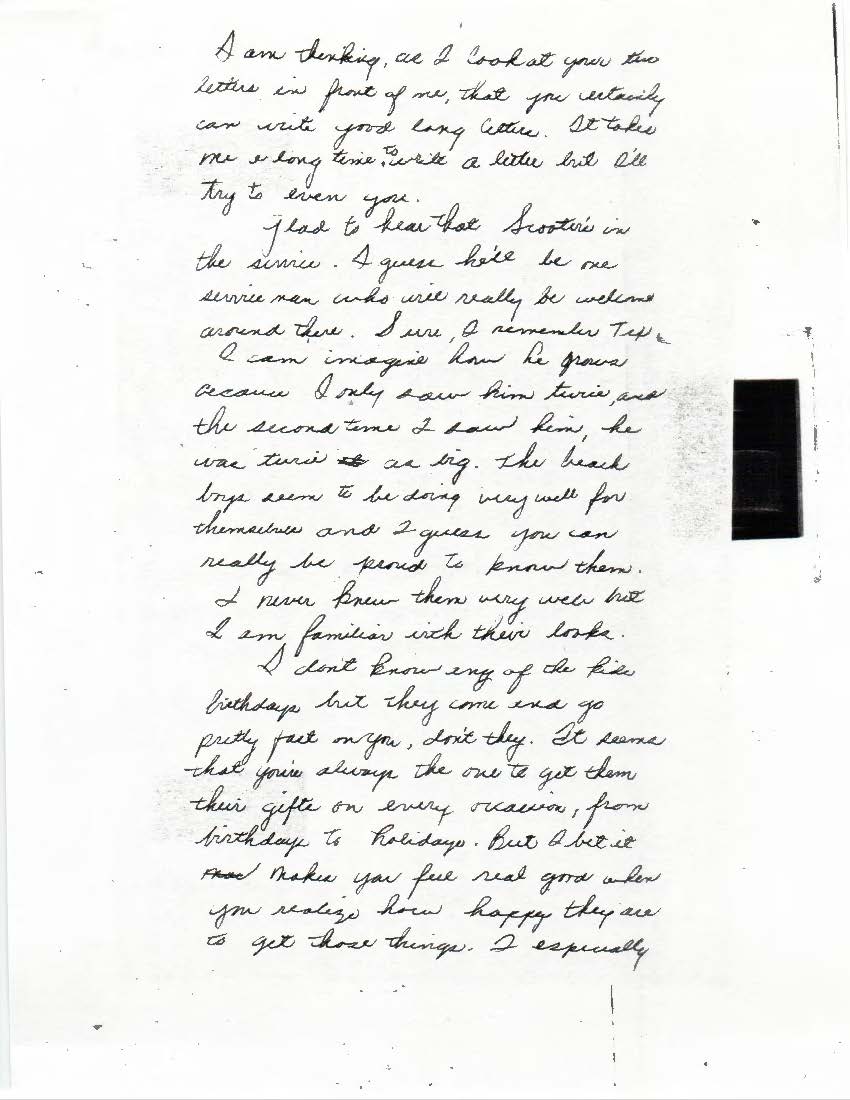 I am thinking, as I look at your two
letters in front of me, that you certainly
can write good long letters. It takes
me a long time to write a letter but I'll
try to even you.
Glad to hear that Scooter's in
the service. I guess he'll be one
service man who will really be welcome
around there. Sure, I remember Tex.
I can imagine how he grows
because I only saw him twice, and
the second time I saw him, he
was twice as big. The beach
boys seem to be doing very well for
themselves and I guess you can
really be proud to know them.
I never knew them very well but
I am familiar with their looks.
I don't know any of the kids
birthdays but they come and go
pretty fast on you, don't they. It seems
that you're always the one to get them
their gifts on every occasion, from
birthdays to holidays. But I bet it
makes you feel real good when
you realize how happy they are
to get those things. I especially